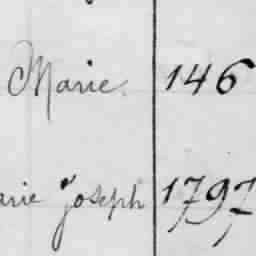 Marie. 146
arie Joseph 1797